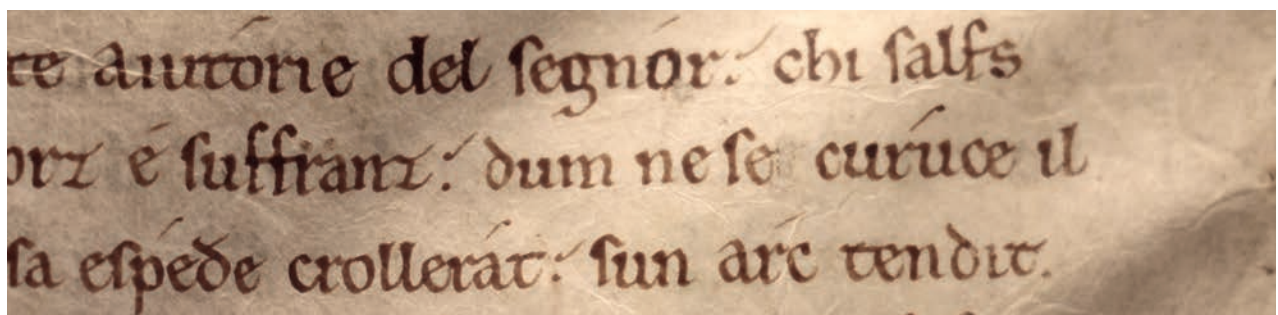 te aiutórie del segnór: chi salfs
orz é suffranz: dum ne se curúce il
sa espéðe crollerát: sun arc tendit.